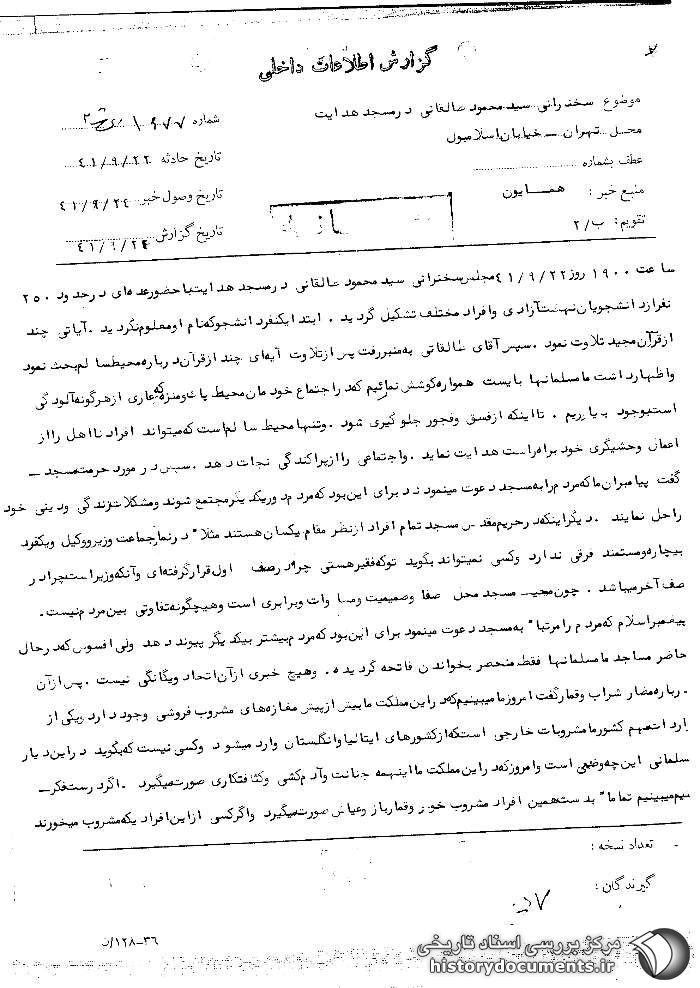 گزارش اطلاعات داخلی
موضوع سخنرانی سید محمود طالقانی در مسجد هدایت
محل تهران – خیابان اسلامبول
عطف بشماره
منبع خبر : همایون
تقویم : ب/۲
شماره ۱۹۷۷
تاریخ حادثه ۴۱/۹/۲۲
تاریخ وصول خبر ۴۱/۹/۲۴
تاریخ گزارش ۴۱/۹/۲۴
ساعت ۱۹۰۰ روز ۴۱/۹/۲۲ مجلس سخنرانی سید محمود طالقانی در مسجد هدایت با حضور عده‌ای در حدود ۲۵۰
نفر از دانشجویان نهضت آزادی و افراد مختلف تشکیل گردید . ابتدا یکنفر دانشجو که نام او معلوم نگردید . آیاتی چند
از قرآن مجید تلاوت نمود . سپس آقای طالقانی به منبر رفت پس از تلاوت آیه‌ای چند از قرآن درباره محیط سالم بحث نمود
و اظهار داشت ما مسلمانها بایست همواره کوشش نمائیم که در اجتماع خودمان محیط پاک و منزه که عاری از هرگونه آلودگی
است بوجود بیاوریم . تا اینکه از فسق و فجور جلوگیری شود . و تنها محیط سالم است که میتواند افراد نااهل را از
اعمال وحشیگری خود براه راست هدایت نماید . و اجتماعی را از پراکندگی نجات دهد . سپس در مورد حرمت مسجد –
گفت پیامبران ما که مردم را به مسجد دعوت مینمودند برای این بود که مردم دور یکدیگر مجتمع شوند و مشکلات زندگی و دینی خود
را حل نمایند . دیگر اینکه در حریم مقدس مسجد تمام افراد از نظر مقام یکسان هستند مثلا" در نماز جماعت وزیر و وکیل و یکفرد
بیچاره و مستمند فرقی ندارد و کسی نمیتواند بگوید تو که فقیر هستی چرا در صف اول قرار گرفته‌ای و آنکه وزیر است چرا در
صف آخر میباشد . چون محیط مسجد محل صفا و صمیمیت و مساوات و برابری است و هیچگونه تفاوتی بین مردم نیست .
پیغمبر اسلام که مردم را مرتبا" به مسجد دعوت مینمود برای این بود که مردم بیشتر بیکدیگر پیوند دهد ولی افسوس که در حال
حاضر مساجد ما مسلمانها فقط منحصر بخواندن فاتحه گردیده . و هیچ خبری از آن اتحاد و یگانگی نیست . پس از آن
درباره مضار شراب و قمار گفت امروز ما میبینیم که در این مملکت ما بیش از پیش مغازه‌های مشروب فروشی وجود دارد و یکی از
واردات مهم کشور ما مشروبات خارجی است که از کشورهای ایتالیا و انگلستان وارد میشود و کسی نیست که بگوید در این دیار
مسلمانی این چه وضعی است و امروز که در این مملکت ما اینهمه جنایت و آدم کشی و کثافتکاری صورت میگیرد . اگر درست فکر –
کنیم میبینیم تماما" بدست همین افراد مشروب خور و قمارباز و عیاش صورت میگیرد و اگر کسی از این افرادیکه مشروب میخورند
تعداد نسخه :
گیرندگان :
۳۶–۱۲۸/ن
مرکز بررسی اسناد تاریخی
historydocuments.ir